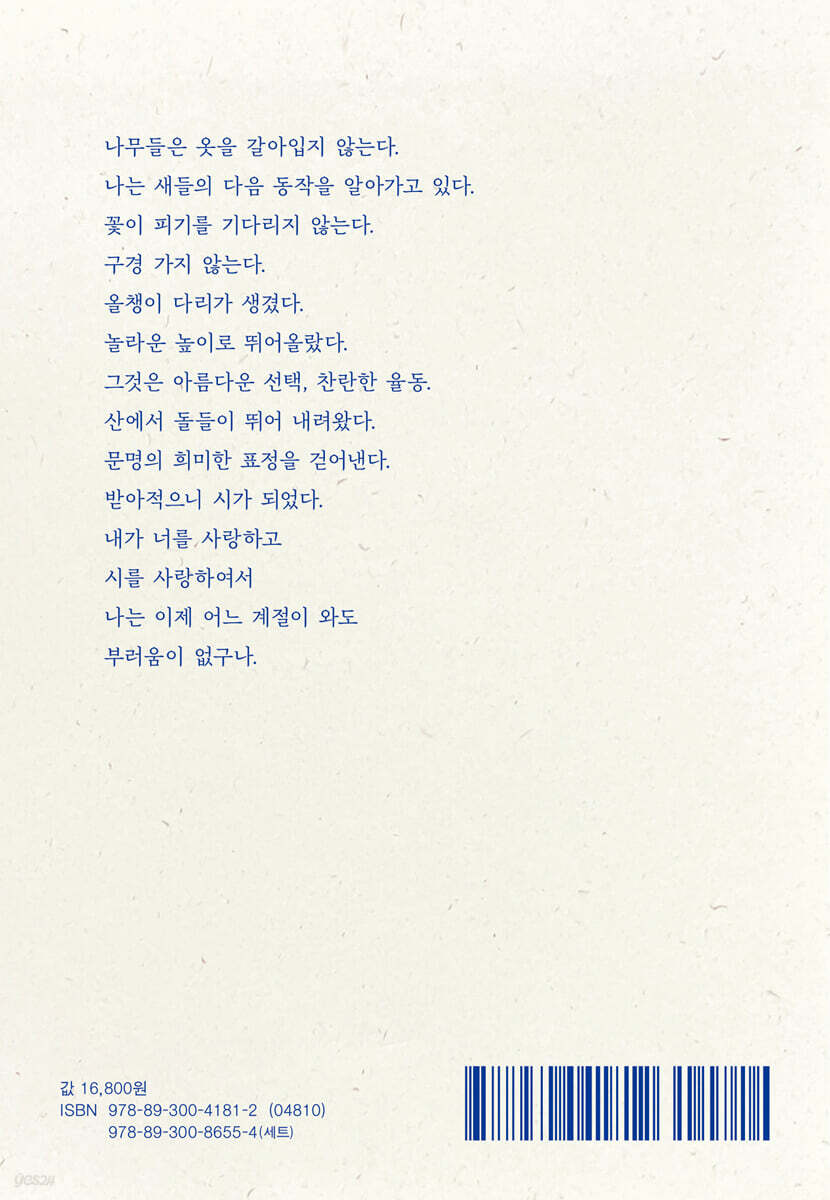 나무들은 옷을 갈아입지 않는다.
나는 새들의 다음 동작을 알아가고 있다.
꽃이 피기를 기다리지 않는다.
구경 가지 않는다.
올챙이 다리가 생겼다.
놀라운 높이로 뛰어올랐다.
그것은 아름다운 선택, 찬란한 율동.
산에서 돌들이 뛰어 내려왔다.
문명의 희미한 표정을 걷어낸다.
받아적으니 시가 되었다.
내가 너를 사랑하고
시를 사랑하여서
나는 이제 어느 계절이 와도
부러움이 없구나.
값 16,800원
ISBN 978-89-300-4181-2 (04810)
978-89-300-8655-4(세트)
yes24